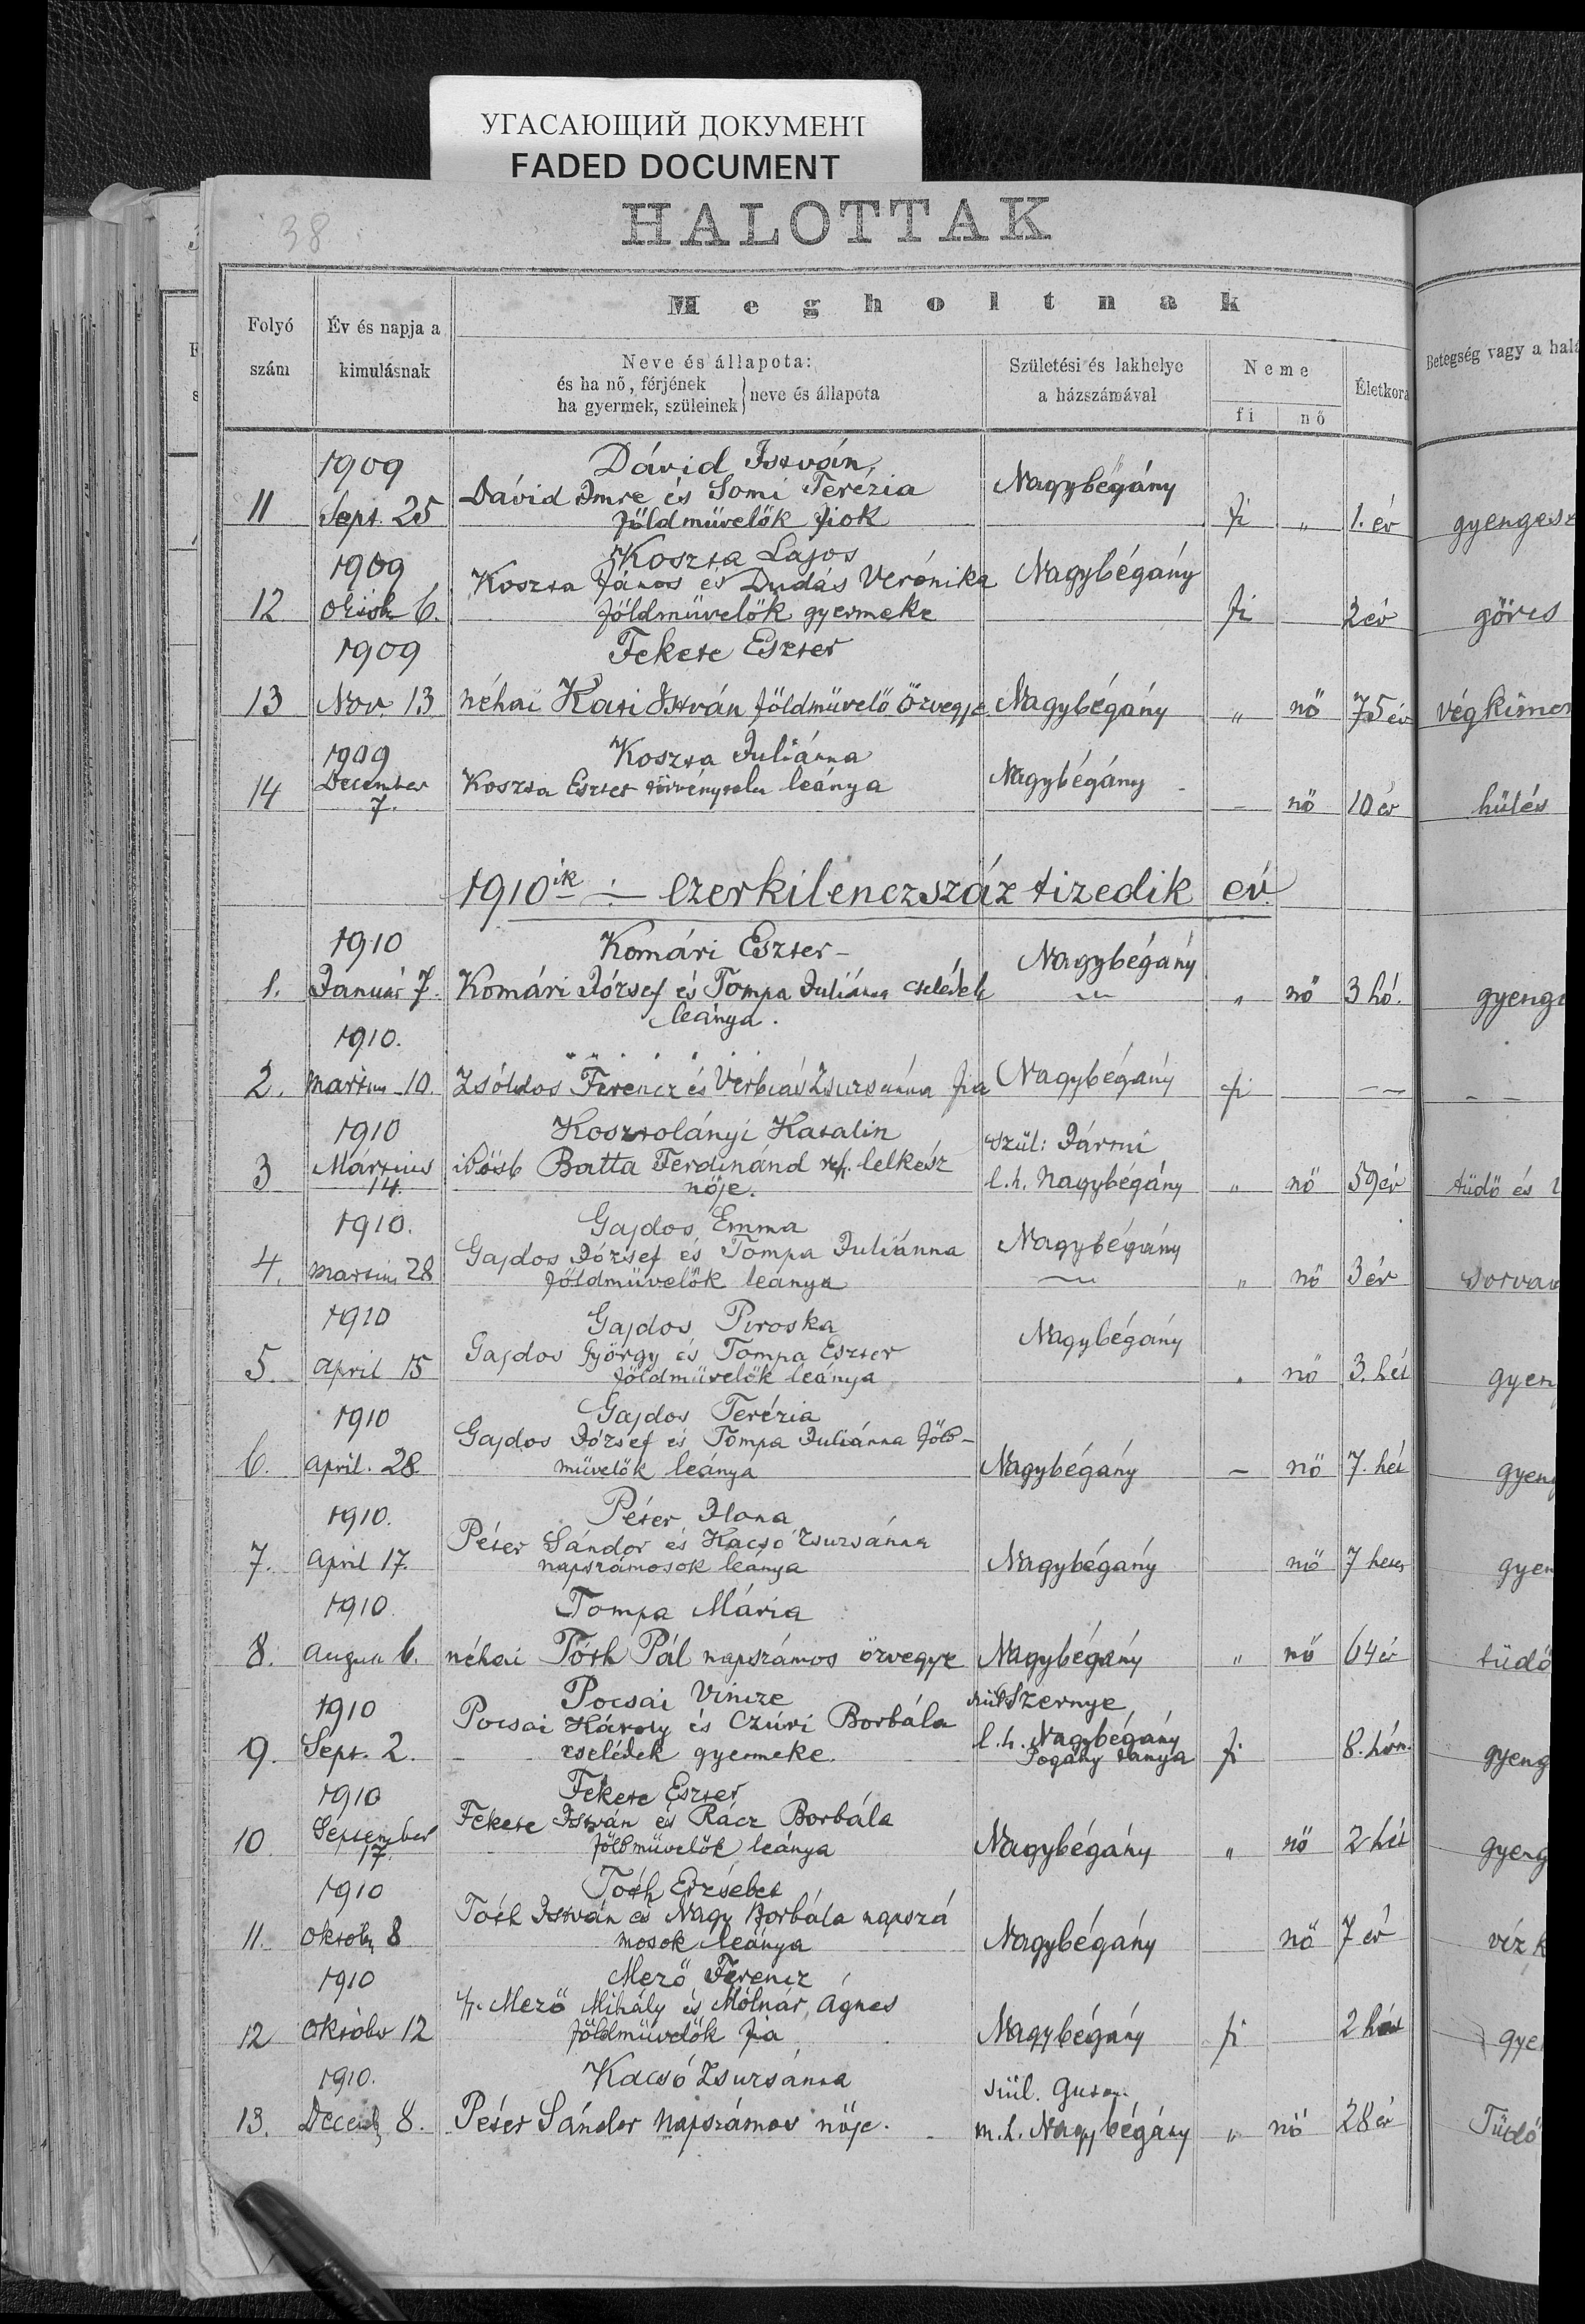 УГАСАЮЩИЙ ДОКУМЕНТ
FADED DOCUMENT
38
HALOTTAK
Megholtnak
Folyó szám
Év és napja a kimulásnak
Neve és állapota:
és ha nő, férjének
ha gyermek, szüleinek } neve és állapota
Születési és lakhelye a házszámával
Neme
fi nő
Életkora
Betegség vagy a halá
1909 Dávid István,
Dávid Imre és Somi Terézia Nagybégány
11 Sept. 25 földművelők fiok fi „ 1. év gyengesz
1909 Koszta Lajos
Koszta János és Dudás Verónika Nagybégány
12 6. földművelők gyermeke fi 2 év görcs
1909 Fekete Eszter
13 Nov. 13 néhai Kati István földművelő özvegye Nagybégány „ nő 75 év végkimer
1909 Koszta Juliánna
14 December 7. Koszta Eszter törvénytelen leánya Nagybégány - – nő 10 év hülés
1910ik ÷ ezerkilenczszáz tizedik év.
1910 Komári Eszter - Nagybégány
1. Január 7. Komári József és Tompa Juliánna cselédek „ nő 3 hó. gyenge
leánya.
1910.
2. Martius 10. Zsóldos Ferencz és Verbiás Zsuzsánna fia Nagybégány fi – – – –
1910 Kosztolányi Katalin szül: Dármi
3 Mártius 14. idősb Batta Ferdinánd ref. lelkész l.h. Nagybégány „ nő 59 év tüdő és
nője.
1910. Gajdos Emma
Gajdos József és Tompa Juliánna Nagybégány
4. Martius 28 földművelők leánya „ nő 3 év sorvad
1910 Gajdos Piroska
Gajdos György és Tompa Eszter Nagybégány
5. April 15 földművelők leánya . nő 3. hét gyen
1910 Gajdos Terézia
Gajdos József és Tompa Juliánna föld-
6. April. 28. művelők leánya Nagybégány – nő 7. hét gyeng
1910. Péter Ilona
Péter Sándor és Kacsó Zsuzsánna
7. April 17. napszámosok leánya Nagybégány nő 7 hetes gyen
1910. Tompa Mária
8. 6. néhai Tóth Pál napszámos özvegye Nagybégány „ nő 64 év tüdő
1910 Pocsai Vincze szül Szernye
Pocsai Károly és Czúri Borbála l.h. Nagybégány
9. Sept. 2. - cselédek gyermeke. Pogány tanya fi 8. hón. gyeng
1910 Fekete Eszter
Fekete István és Rácz Borbála
10. September 17. földművelők leánya Nagybégány „ nő 2 hét gyeng
1910 Tóth Erzsébet
Tóth István és Nagy Borbála napszá
11. Októb. 8 mosok leánya Nagybégány nő 7 év víz k
1910 Mező Ferencz
ifj. Mező Mihály és Mólnár Ágnes
12 Október 12 földművelők fia Nagybégány fi 2 gye
1910. Kacsó Zsuzsánna szül.
13. 8. Péter Sándor napszámos nője. - m.h. Nagybégány „ nő 28 év Tüdő